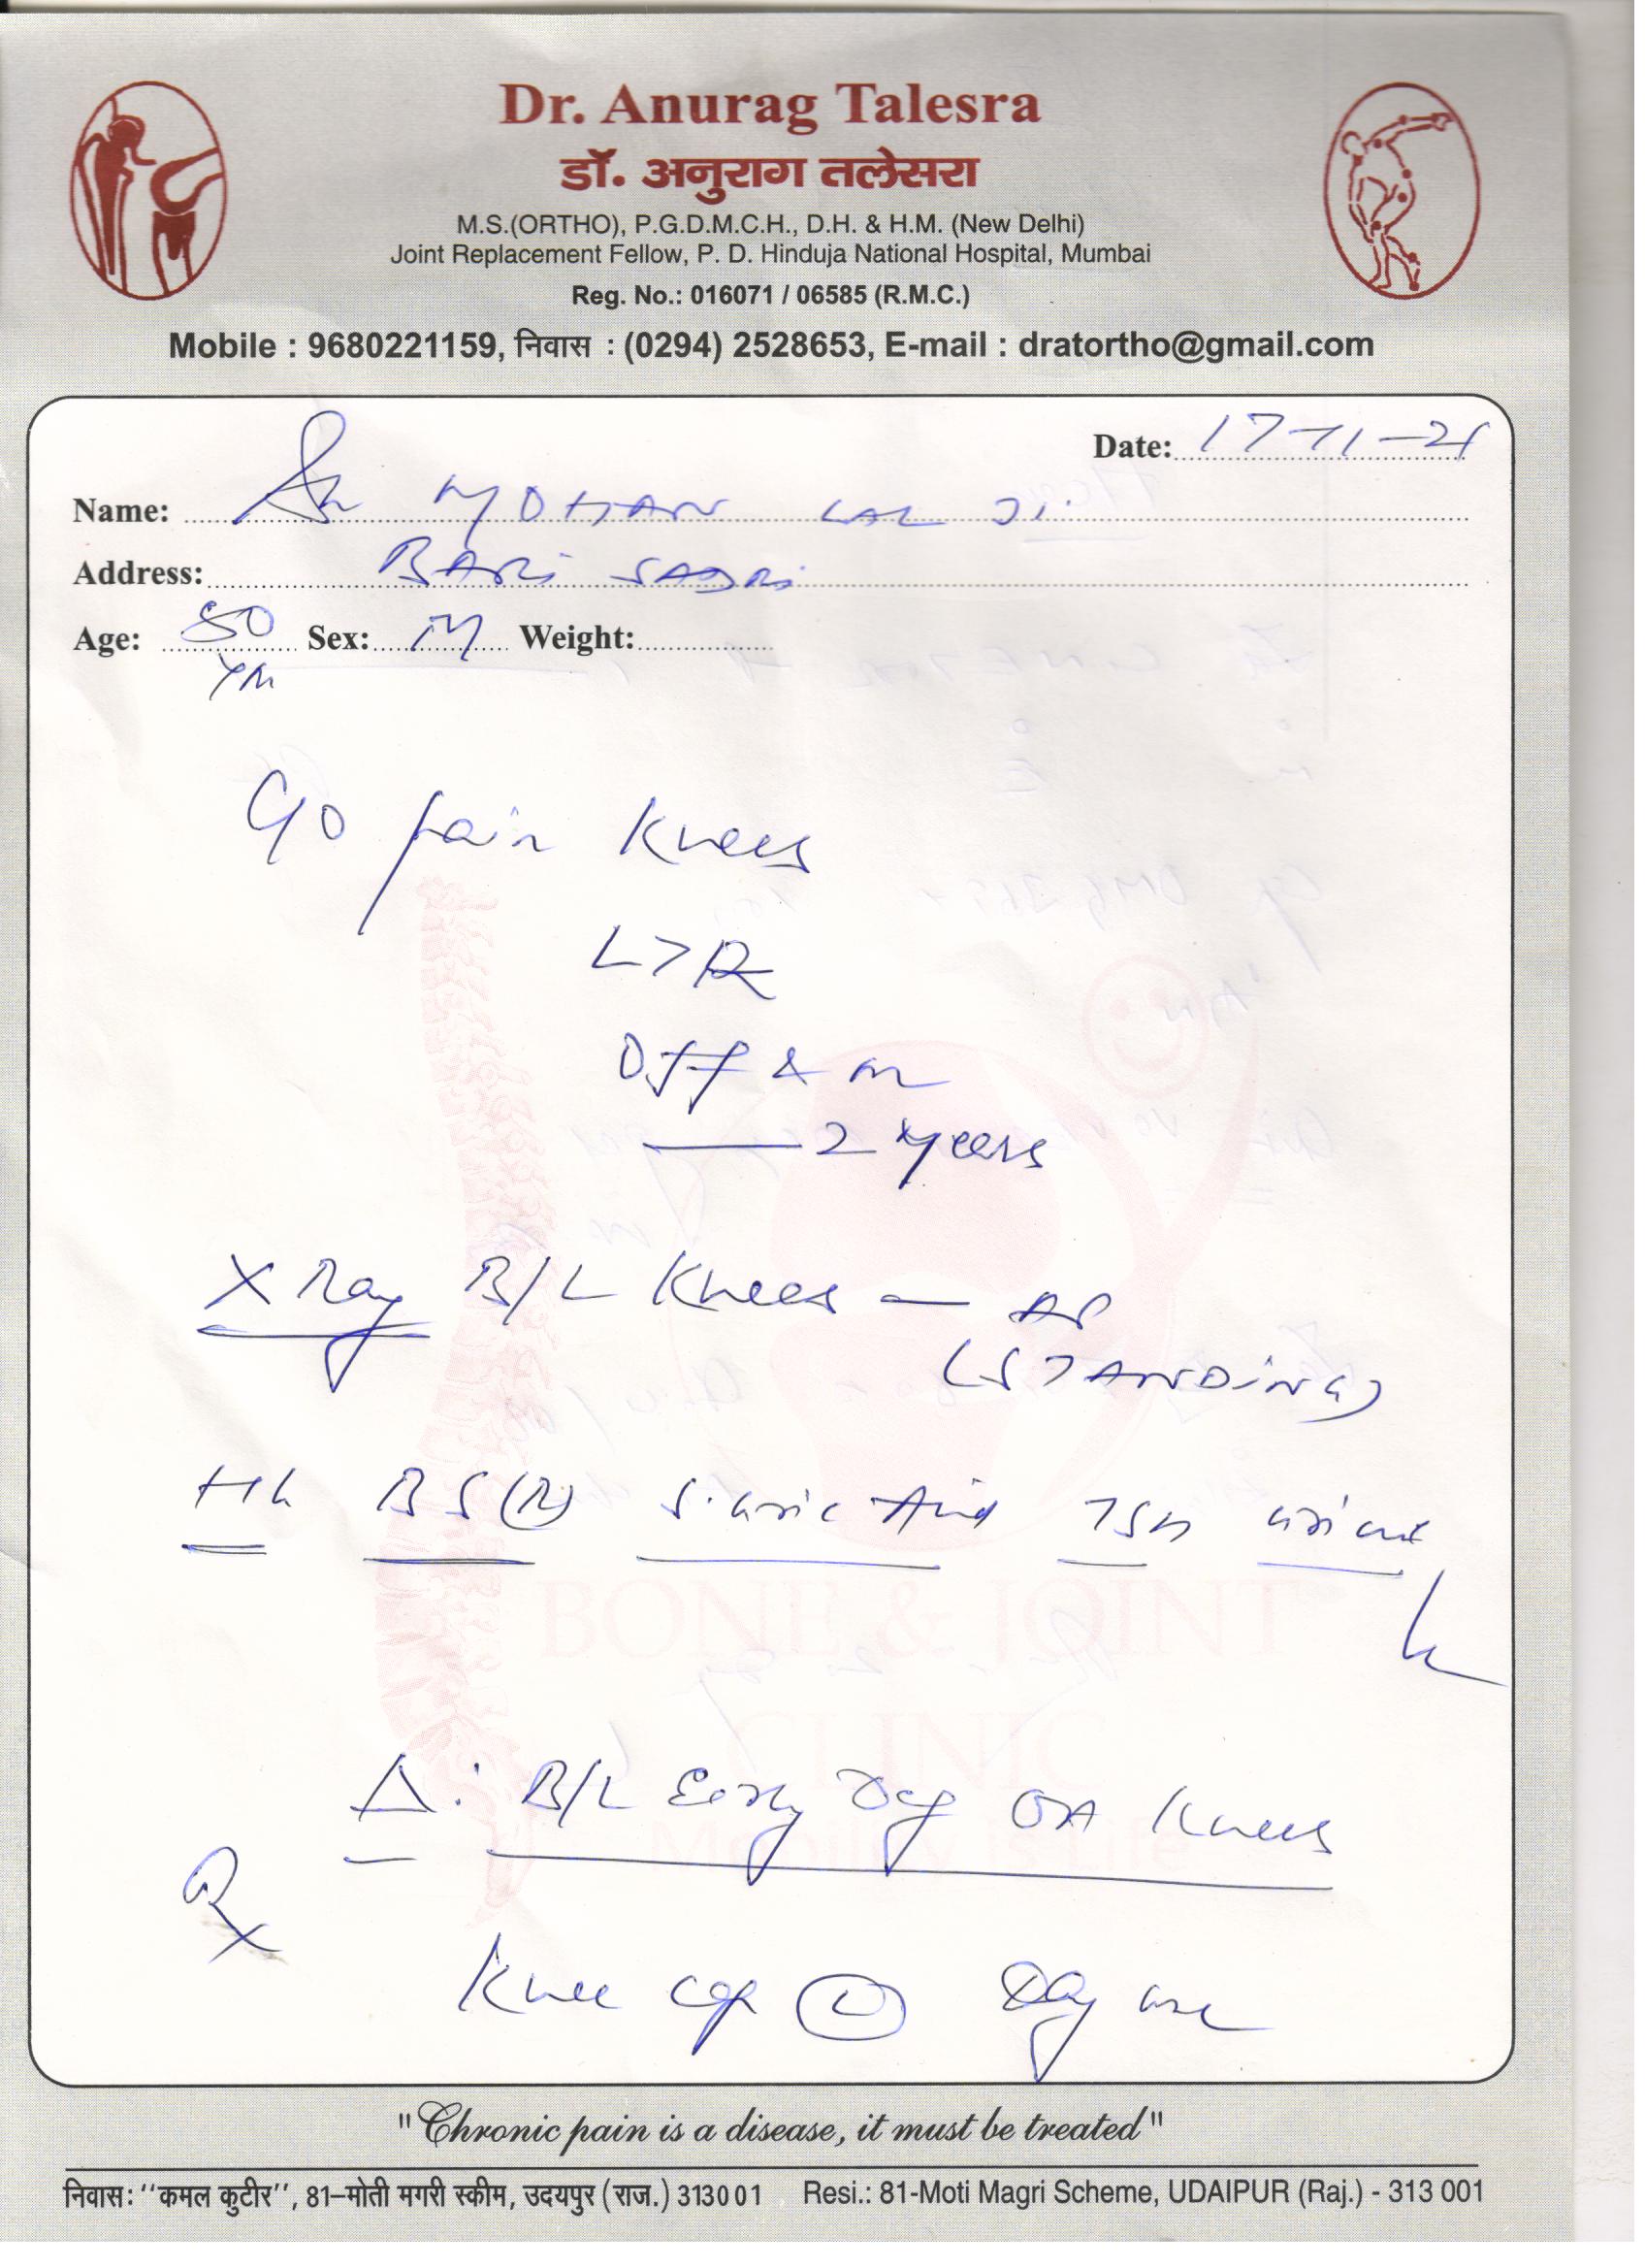 Dr. Anurag Talesra
डॉ. अनुराग तलेसरा
M.S.(ORTHO), P.G.D.M.C.H., D.H. & H.M. (New Delhi)
Joint Replacement Fellow, P. D. Hinduja National Hospital, Mumbai
Reg. No.: 016071 / 06585 (R.M.C.)
Mobile : 9680221159, निवास : (0294) 2528653, E-mail : dratortho@gmail.com
Date: 17-11-21
Name: MOHAN LAL JI.
Address: BARI SADRI
Age: Sex: M Weight:
C/o pain Knees
L>R
Off & on
2 years
X Ray B/L Knees — AP
(STANDING)
Hb BS(R) S. Uric Acid TSH
BONE & JOINT
CLINIC
Δ: B/L Early Deg OA Knees
Rx
Knee cap L Day use
"Chronic pain is a disease, it must be treated"
निवास: ''कमल कुटीर'', 81–मोती मगरी स्कीम, उदयपुर (राज.) 313001 Resi.: 81-Moti Magri Scheme, UDAIPUR (Raj.) - 313 001